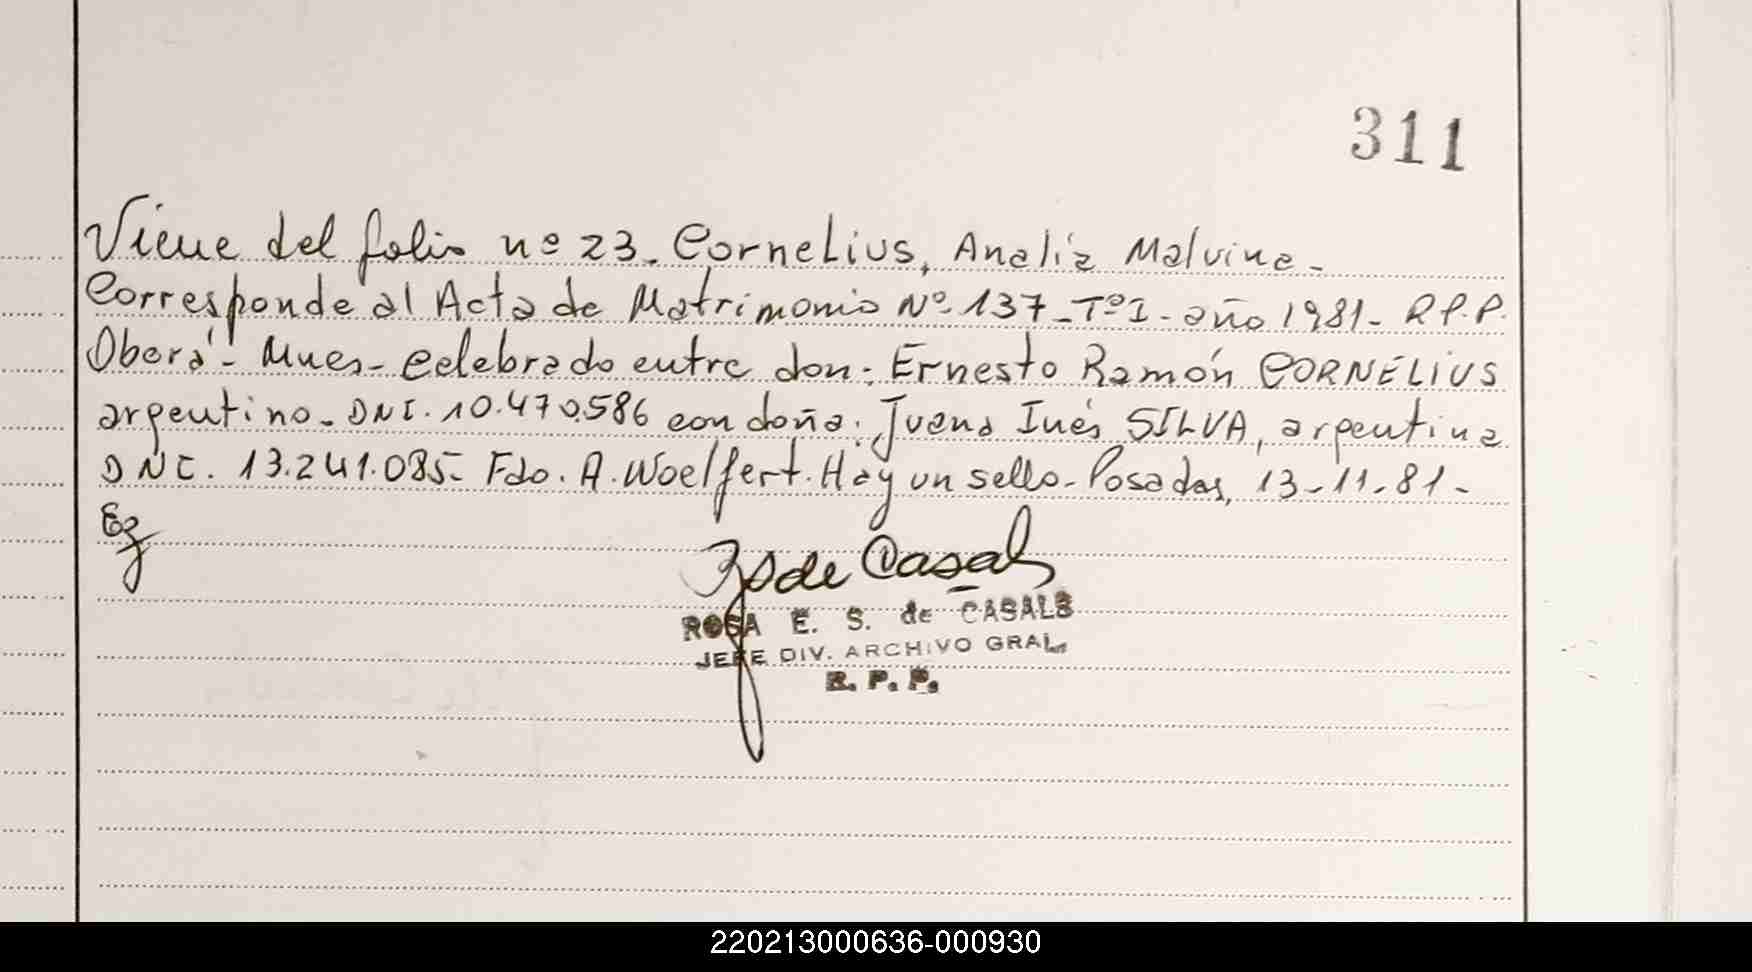 311
Viene del folio nº 23. Cornelius, Analía Malvina-
Corresponde al Acta de Matrimonio Nº 137-TºI- año 1981- R.P.P.
Oberá- Mnes- Celebrado entre don: Ernesto Ramón CORNELIUS
argentino- DNI. 10.470.586 con doña: Juana Inés SILVA, argentina
DNI. 13.241.085- Fdo. A. Woelfert. Hay un sello- Posadas, 13-11-81-
de Casals
ROSA E. S. de CASALS
JEFE DIV. ARCHIVO GRAL.
R. P. P.
220213000636-000930